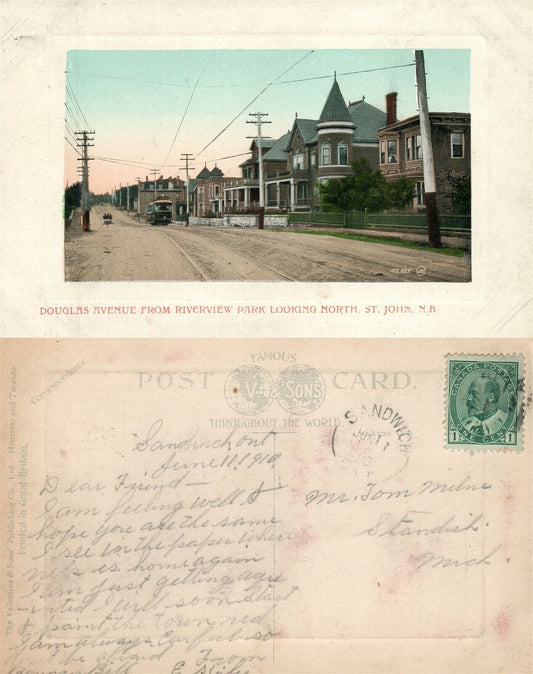 DOUGLAS AVENUE FROM RIVERVIEW PARK LOOKING NORTH, ST. JOHN, N.B.
FAMOUS
POST CARD.
V. & SONS
THROUGHOUT THE WORLD
Correspondence.
The Valentine & Sons' Publishing Co., Ltd. Montreal and Toronto
Printed in Great Britain.
SANDWICH
CANADA POSTAGE
1 1
ONE CENT
Sandwich Ont
June 11, 1910
Dear Friend—
I am feeling well &
hope you are the same
I see in the paper where
is home again
I am just getting aqu
-inted I will soon start
& paint the town red
I am always careful so
don't be afraid From
Bill E
Mr. Tom Milne
Standish
Mich